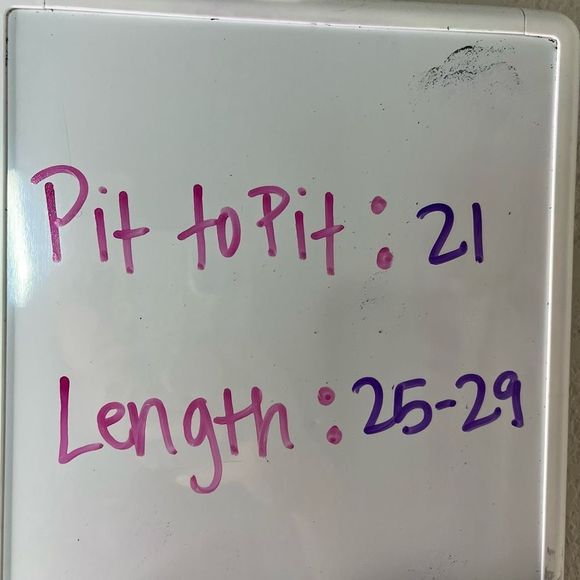 Pit to Pit: 21
Length: 25-29